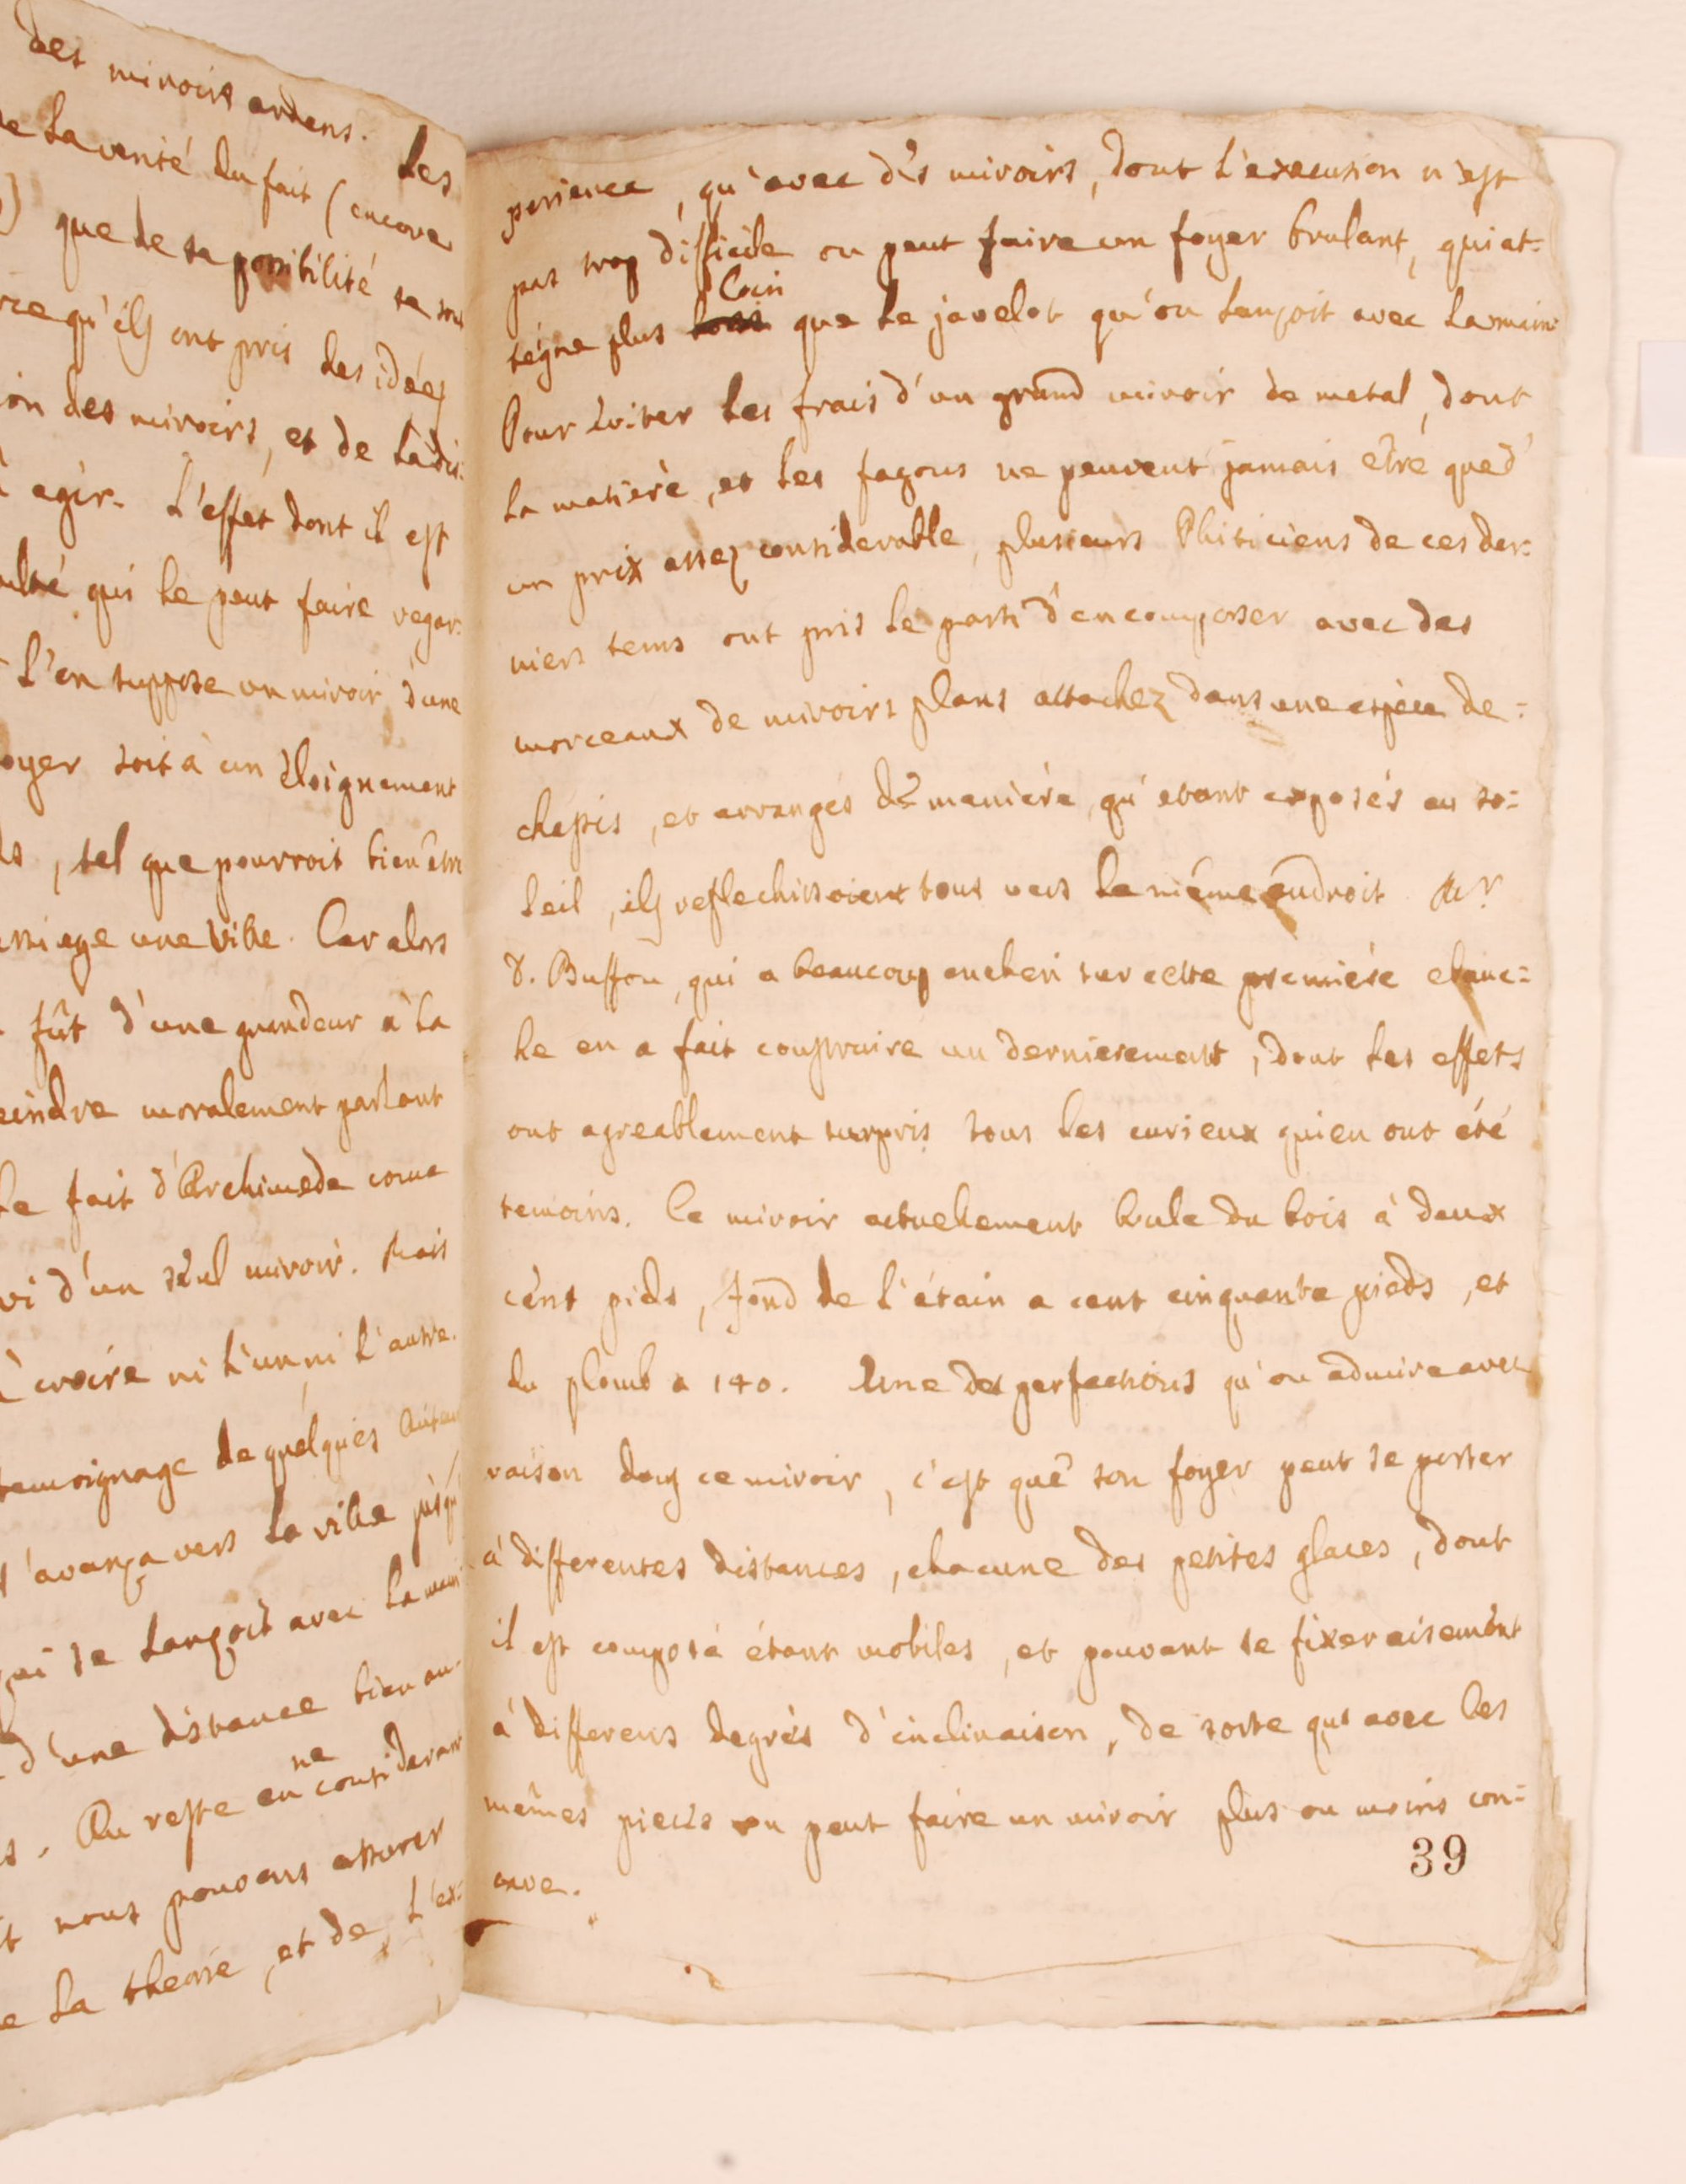 des miroirs ardens. Les
la verité du fait (encore
que de sa possibilité se sont
qu'ils ont pris des idées
des miroirs, et de la dis-
agir. L'effet dont il est
qui le peut faire regar-
L'on suppose un miroir d'une
soit à un éloignement
, tel que pourroit bien être
une ville. Car alors
fût d'une grandeur à la
moralement parlant
fait d'Archimede come
d'un seul miroir. Mais
croire ni l'un ni l'autre.
temoignage de quelques
s'avança vers la ville
se lançoit avec la main
d'une distance bien au-
. Au reste en ne considerant
nous pouvons assurer
la theorie, et de l'ex-
perience, qu'avec des miroirs, dont l'execution n'est
pas trop difficile on peut faire un foyer brulant, qui at=
teigne plus loin que le javelot qu'on lançoit avec la main
Pour éviter les frais d'un grand miroir de metal, dont
la matière, et les façons ne peuvent jamais etre que d'
un prix assez considerable, plusieurs Phisiciens de ces der=
niers tems ont pris le parti d'en composer avec des
morceaux de miroirs plans attachez dans une espèce de=
chassis, et arrangés de manière, qu'etant exposés au so=
leil, ils reflechissoient tous vers le méme endroit Mr.
d. Buffon, qui a beaucoup encheri sur cette premiére ebauc=
he en a fait construire un dernierement, dont les effets
ont agreablement surpris tous les curieux qui en ont été
temoins. Ce miroir actuellement brule du bois à deux
cent pids, fond de l'étain a cent cinquante pieds, et
du plomb a 140. Une des perfections qu'on admire avec
raison dans ce miroir, c'est que son foyer peut se porter
à differentes distances, chacune des petites glaces, dont
il est composé étant mobiles, et pouvant se fixer aisement
à differens degrés d'inclinaison, de sorte que avec les
mêmes pieces on peut faire un miroir plus ou moins con=
cave.
39